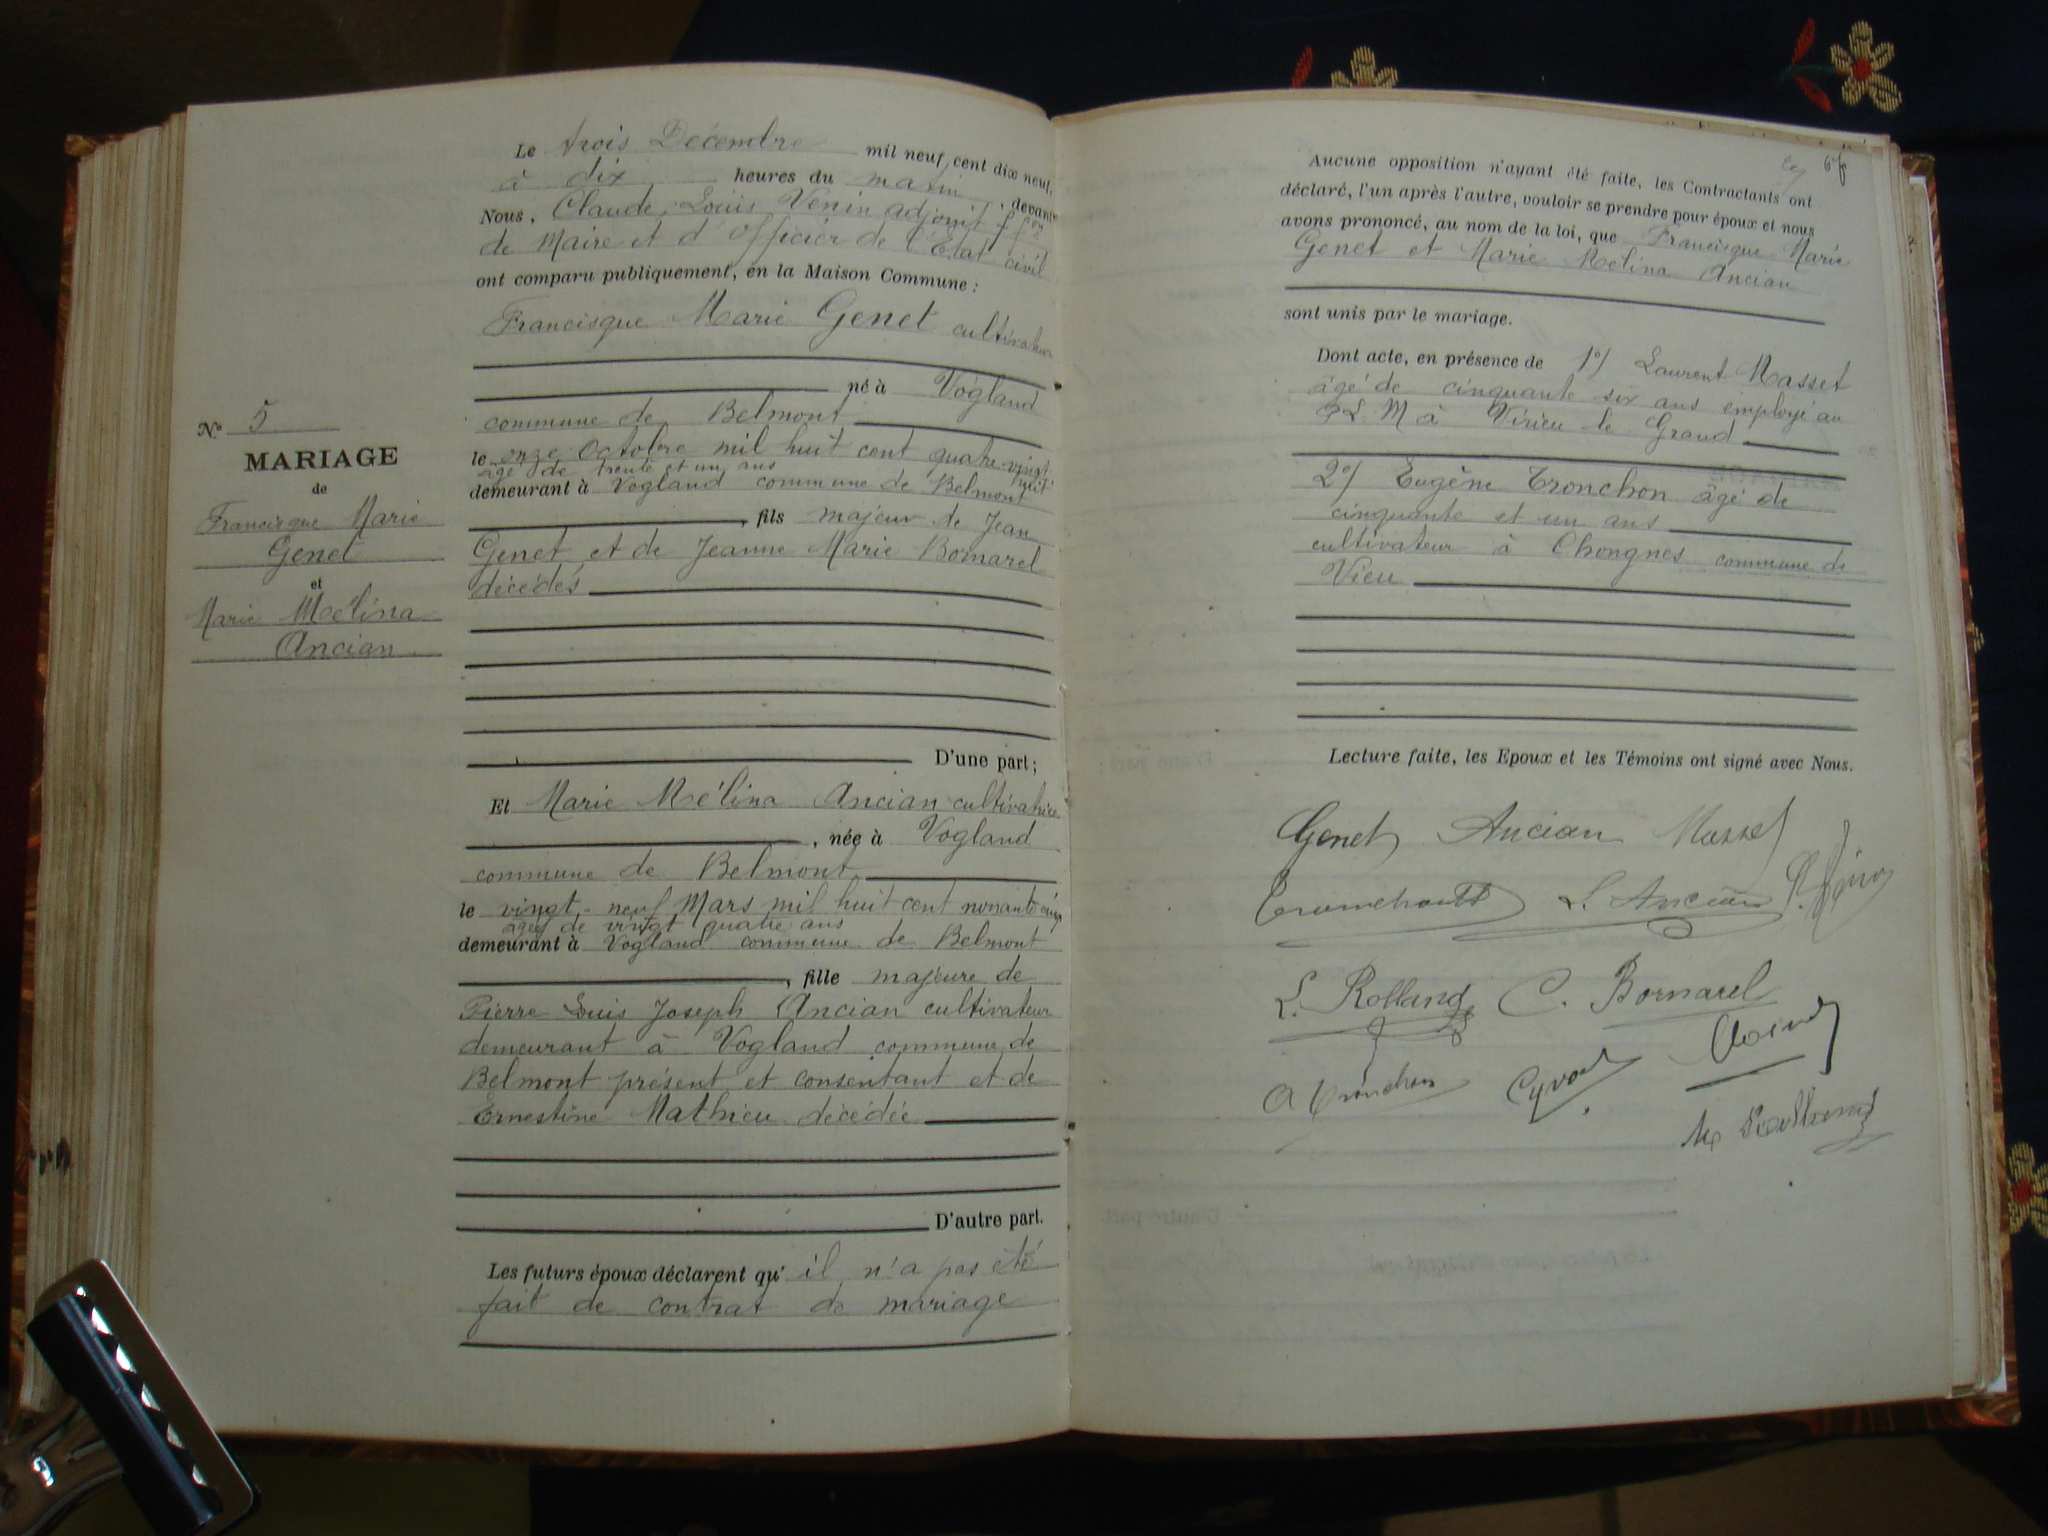 Nº 5
MARIAGE
de
Francisque Marie
Genet
et
Marie Mélina
Ancian
Le trois Décembre mil neuf cent dix neuf,
à dix heures du matin, devant
Nous, Claude Louis Venin adjoint ff on
de Maire et d'Officier de l'Etat civil
ont comparu publiquement, en la Maison Commune :
Francisque Marie Genet cultivateur
né à Vogland
commune de Belmont
le onze Octobre mil huit cent quatre vingt
huit
âgé de trente et un ans
demeurant à Vogland commune de Belmont
, fils majeur de Jean
Genet et de Jeanne Marie Bornarel
décédés
D'une part ;
Et Marie Mélina Ancian cultivatrice
, née à Vogland
commune de Belmont
le vingt-neuf Mars mil huit cent nonante cinq
âgée de vingt quatre ans
demeurant à Vogland commune de Belmont
, fille majeure de
Pierre Louis Joseph Ancian cultivateur
demeurant à Vogland commune de
Belmont présent et consentant et de
Ernestine Mathieu décédée
D'autre part.
Les futurs époux déclarent qu'il n'a pas été
fait de contrat de mariage
67
Aucune opposition n'ayant été faite, les Contractants ont
déclaré, l'un après l'autre, vouloir se prendre pour époux et nous
avons prononcé, au nom de la loi, que Francisque Marie
Genet et Marie Mélina Ancian
sont unis par le mariage.
Dont acte, en présence de 1º/ Laurent Masset
âgé de cinquante six ans employé au
P.L.M à Virieu le Grand
2º/ Eugène Tronchon âgé de
cinquante et un ans
cultivateur à Chongnes commune de
Vieu
Lecture faite, les Epoux et les Témoins ont signé avec Nous.
Genet Ancian Masset
L. Ancian
L. Rolland C. Bornarel
A Tronchon